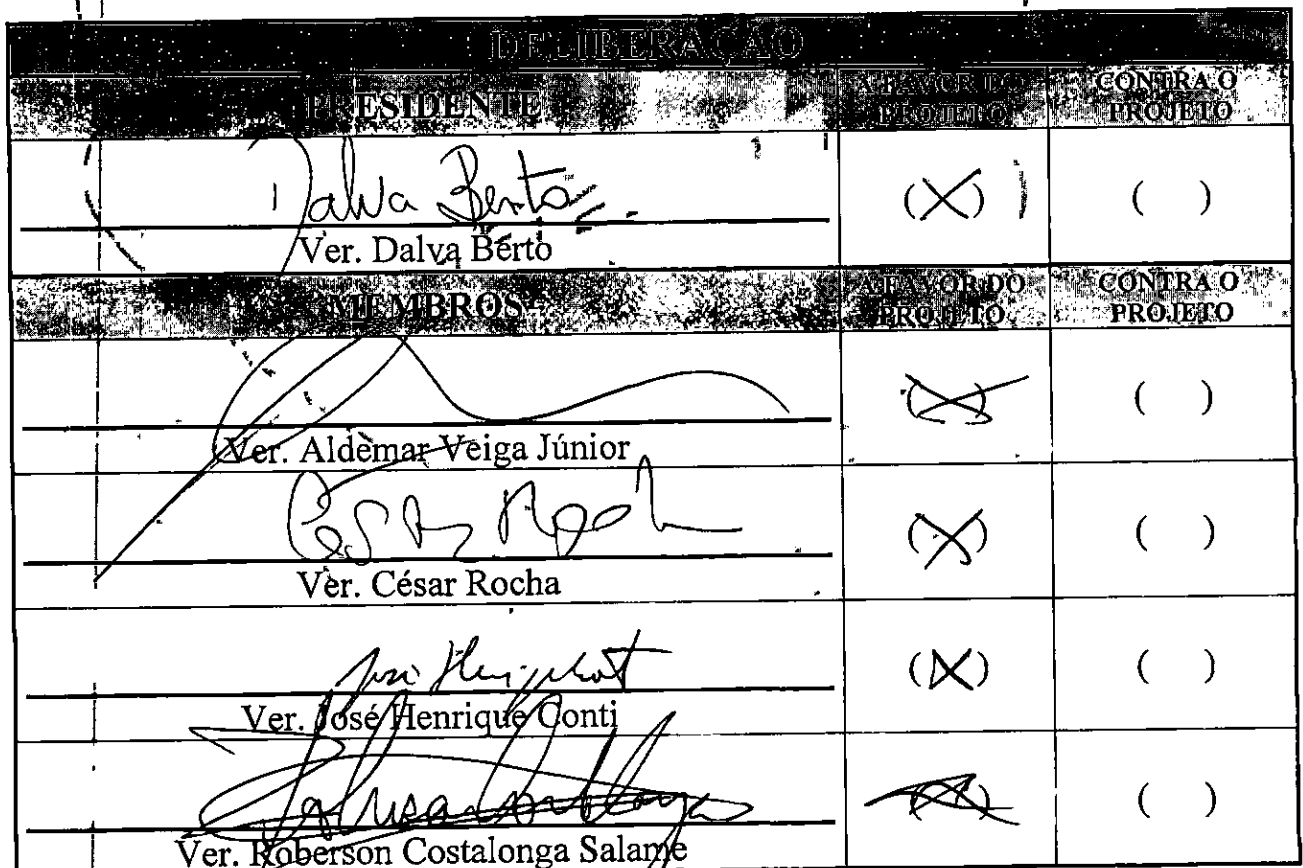 DELIBERAÇÃO
PRESIDENTE A FAVOR DO PROJETO CONTRA O PROJETO
Dalva Berto (X) ( )
Ver. Dalva Berto
MEMBROS A FAVOR DO PROJETO CONTRA O PROJETO
(X) ( )
Ver. Aldemar Veiga Júnior
César Rocha (X) ( )
Ver. César Rocha
(X) ( )
Ver. José Henrique Conti
(X) ( )
Ver. Roberson Costalonga Salame